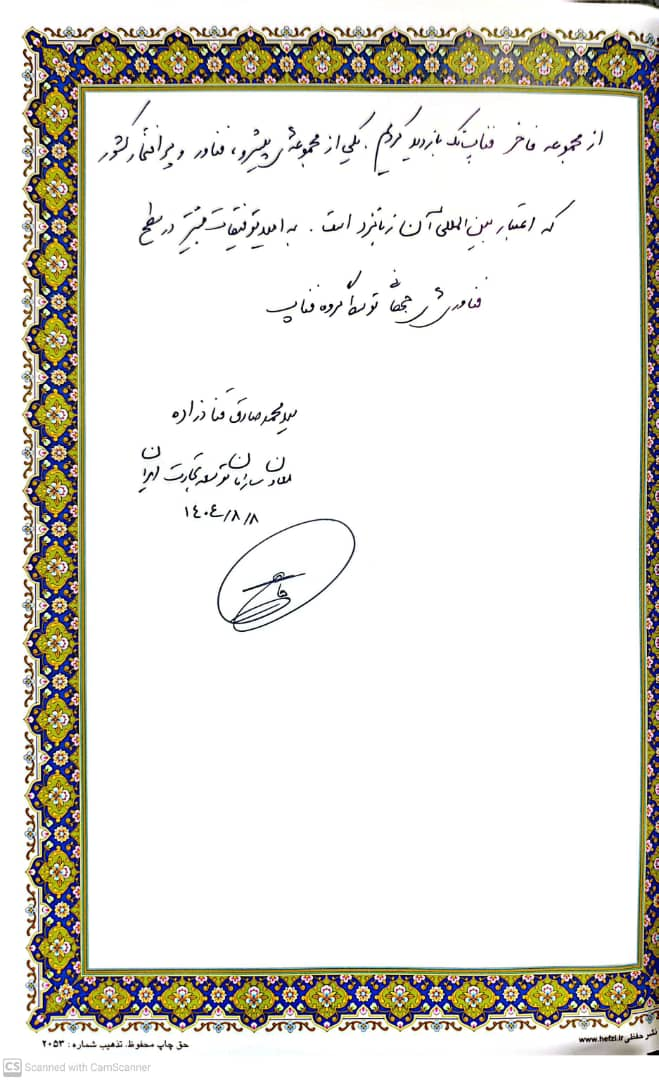 از مجموعه فاخر فناپ‌تک بازدید کردیم. یکی از مجموعه‌های پیشرو، فناور و پر افتخار کشور
که اعتبار بین‌المللی آن زبانزد است. به امید توفیقات بیشتر در سطح
فناوری‌های جهانی توسط گروه فناپ
سید محمد صادق قنادزاده
معاون سازمان توسعه تجارت ایران
۱۴۰۴/۸/۸
نشر حفظی www.hefzi.ir
حق چاپ محفوظ، تذهیب شماره: ۲۰۵۳
CS Scanned with CamScanner